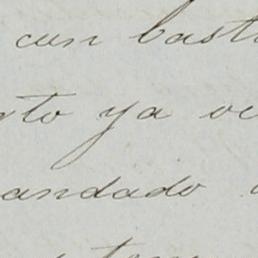 con bast
rto ya ve
andado